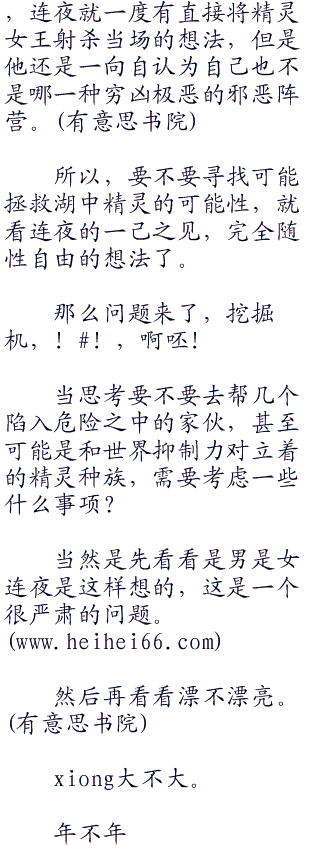 ，连夜就一度有直接将精灵
女王射杀当场的想法，但是
他还是一向自认为自己也不
是哪一种穷凶极恶的邪恶阵
营。(有意思书院)
所以，要不要寻找可能
拯救湖中精灵的可能性，就
看连夜的一己之见，完全随
性自由的想法了。
那么问题来了，挖掘
机，！#！，啊呸！
当思考要不要去帮几个
陷入危险之中的家伙，甚至
可能是和世界抑制力对立着
的精灵种族，需要考虑一些
什么事项？
当然是先看看是男是女
连夜是这样想的，这是一个
很严肃的问题。
(www.heihei66.com)
然后再看看漂不漂亮。
(有意思书院)
xiong大不大。
年不年